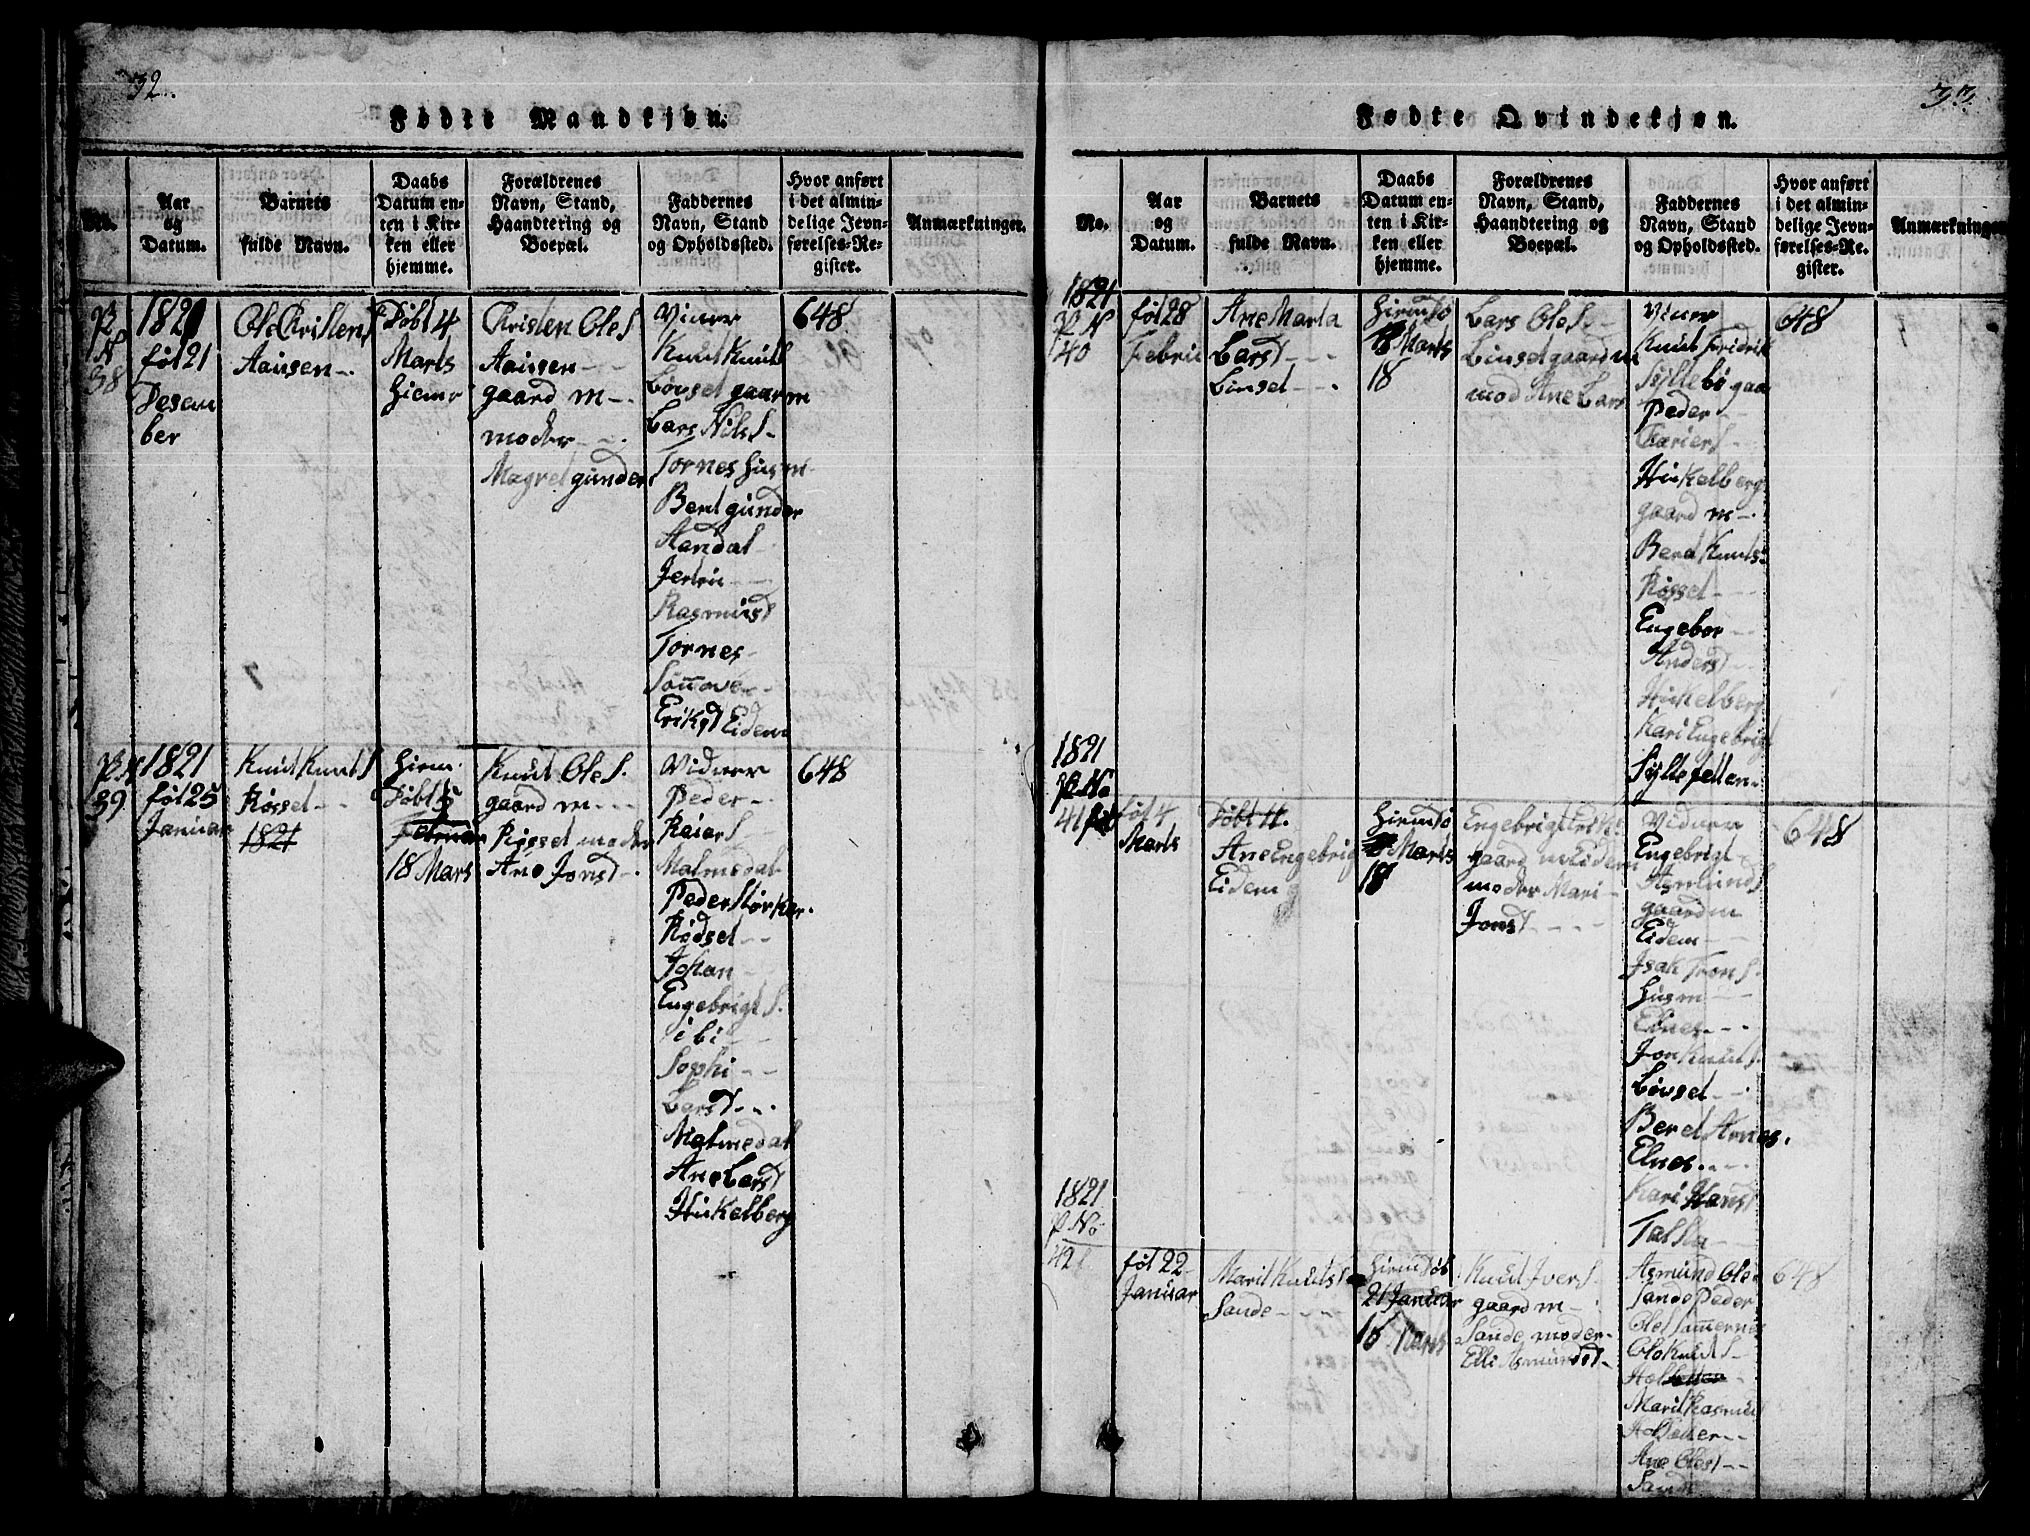 32.
Fødte Mandkjøn.
No.
Aar
og
Datum.
Barnets
fulde Navn.
Daabs
Datum en-
ten i Kir-
ken eller
hjemme.
Forældrenes
Navn, Stand,
Haandtering og
Boepæl.
Faddernes
Navn, Stand
og Opholdssted.
Hvor anført
i det almin-
delige Jevn-
førelses-Re-
gister.
Anmærkninger.
P
N
38
1821
føt 21
Desem
ber
Ole Christens
Aausen -
Døbt 4
Marts
hiemr
Christen Oles
Aausen - -
gaard m -
moder - -
Magret gunder
Vinør
Knut Knuts
Løvset gaarm
Lars Nils -
Tornes husm
Bent gunder
Aandal
Jertru - -
Rasmusd
Tornes -
Eriksd Eidem
648
P N
39
1821
føt 25
Januar
Knut Knuts
Røsset - -
1821
hiem.
Døbt 5
Februar
18 Mars
Knut Oles.
gaard m - -
Røsset moder
Ane Jonsd -
Vidner
Peder -
Raiers
Malmedal
Peder Størker.
Rødset - -
Johan -
Engebrigt S.
i bi - -
Sophi - -
Larsd - -
Malmedal
Ane Larsd
Hukelberg
648
33
Fødte Qvindekjøn.
No.
Aar
og
Datum.
Barnets
fulde Navn.
Daabs
Datum en-
ten i Kir-
ken eller
hjemme.
Forældrenes
Navn, Stand,
Haandtering og
Boepæl.
Faddernes
Navn, Stand
og Opholdssted.
Hvor anført
i det almin-
delige Jevn-
førelses-Re-
gister.
Anmærkninger
1821
P N
40
føt 28
Febru
Ane Marta
Larsd - -
Linset - -
hiemdø
Marts
18
Lars Oles. -
Linset gaard m
mod Ane Lars
Vinør
Knut Fridrik
Syltebø gaa
Peder -
Hukelberg
gaard m -
Berat Knuts
Røsset -
Engebor -
Andersd -
Hukelberg
Kari Engebrig
Syltesetten -
648
1821
P No
41
føt 4
Marts
Døbt 4.
Ane Engebrig
Eidem
hiemdø
Marts
18
Engebrigt Eriks
gaard m Eidem
moder Mari -
Jonsd - -
Vidner
Engebrigt
Asmunds
gaard m
Eidem -
Isak Trons.
husm - -
Elnes - -
Jon Knuts
Løvset - -
Beret Arnes.
Elnes - -
Kari Hansd
648
1821
P No
42
føt 22
Januar
Marit Knutsd
Sande - - -
hiemdøb
21 Januar
18 Mars
Knut Ivers.
gaard m -
Sande moder -
Elli Asmundsd -
Asmund Ole
Sande Peder
Ole Knuts -
Marit Rasmus
Ane Olesd - -
Sande
648